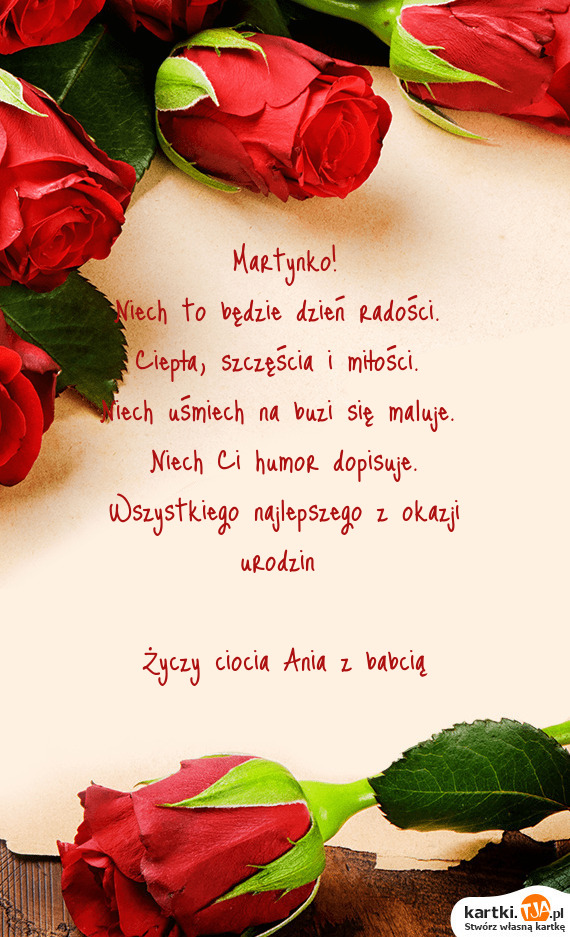 Martynko!
Niech to będzie dzień radości.
Ciepła, szczęścia i miłości.
Niech uśmiech na buzi się maluje.
Niech Ci humor dopisuje.
Wszystkiego najlepszego z okazji
urodzin
Życzy ciocia Ania z babcią
kartki.TJA.pl
Stwórz własną kartkę